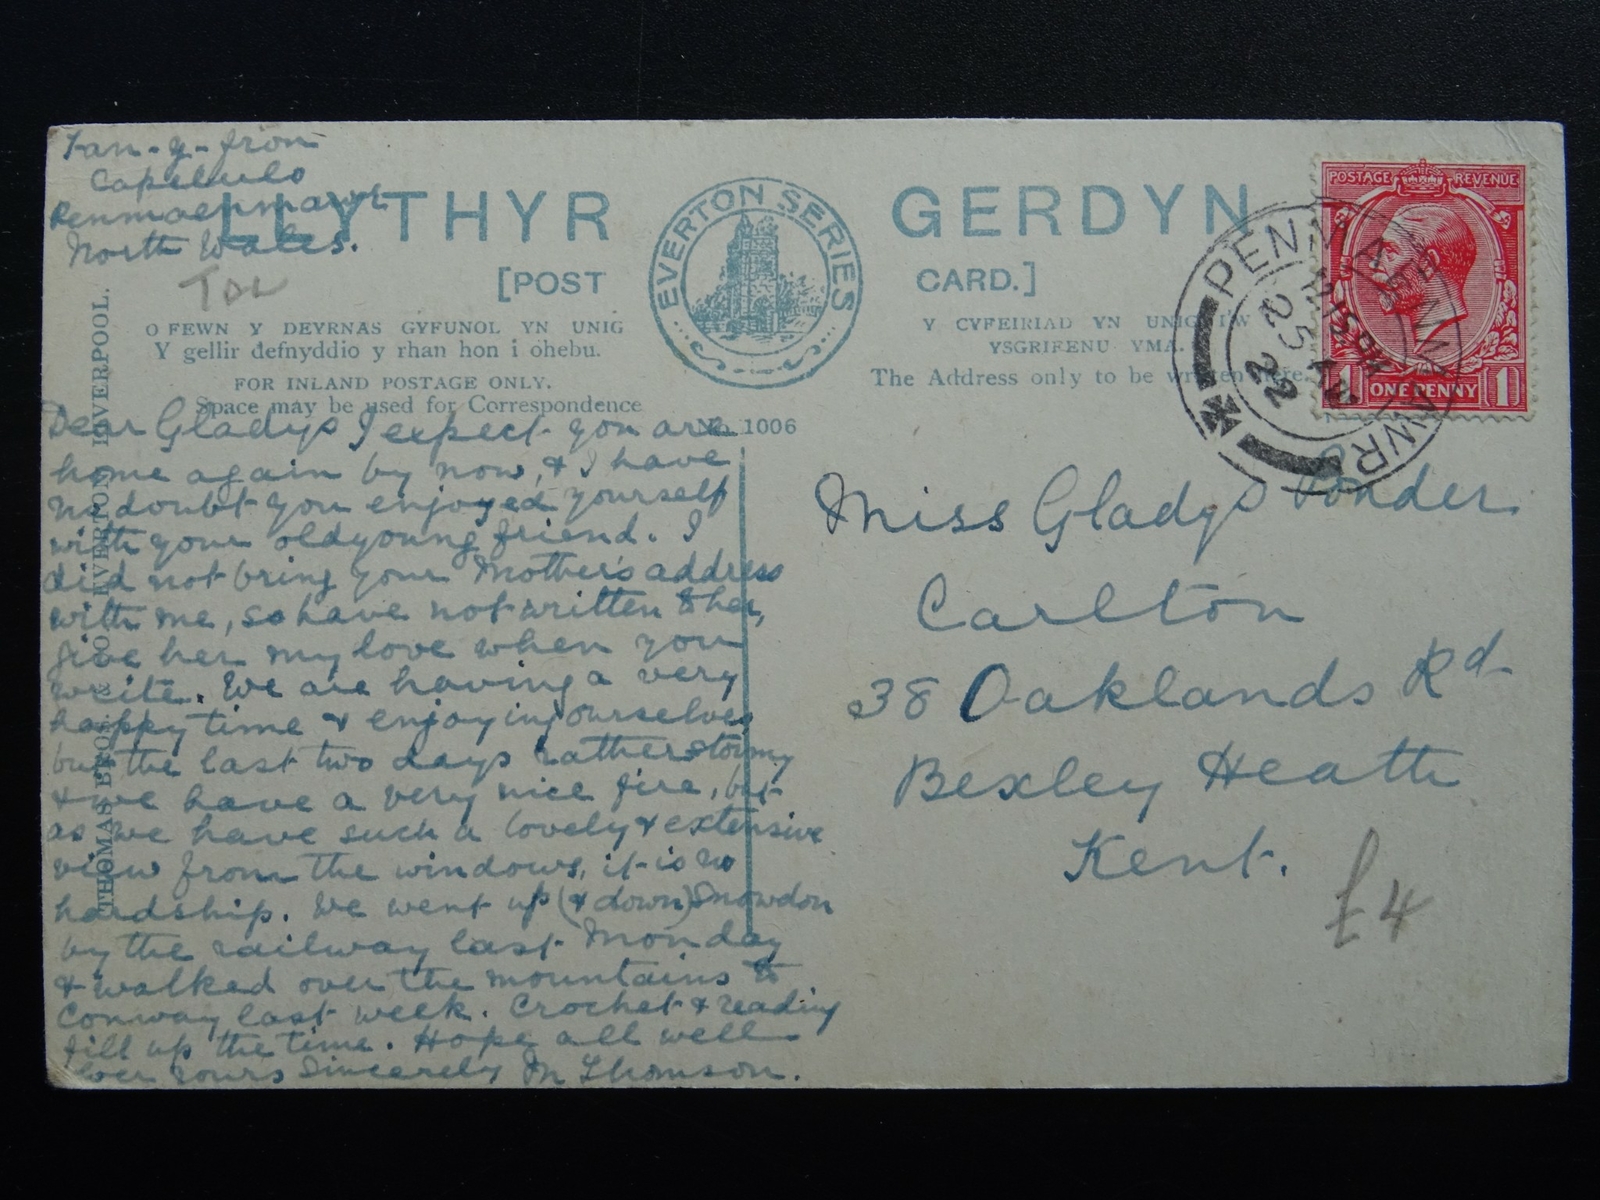 Tan-y-fron
Capelulo
Penmaenmawr
North Wales.
LLYTHYR GERDYN
[POST CARD.]
EVERTON SERIES
O FEWN Y DEYRNAS GYFUNOL YN UNIG
Y gellir defnyddio y rhan hon i ohebu.
FOR INLAND POSTAGE ONLY.
Space may be used for Correspondence
Y CYFEIRIAD YN UNIG I'W
YSGRIFENU YMA.
The Address only to be written here.
No. 1006
THOMAS BROS. & CO. EVERTON LIVERPOOL.
Dear Gladys I expect you are
home again by now, & I have
no doubt you enjoyed yourself
with your old young friend. I
did not bring your Mother's address
with me, so have not written to her,
give her my love when you
write. We are having a very
happy time & enjoying ourselves
but the last two days rather stormy
& we have a very nice fire, but
as we have such a lovely & extensive
view from the windows, it is no
hardship. We went up (& down) Snowdon
by the railway last Monday
& walked over the mountains to
Conway last week. Crochet & reading
fill up the time. Hope all well
Ever yours Sincerely M Thomson.
POSTAGE REVENUE
1 ONE PENNY 1
PENMAENMAWR
22
Miss Gladys Ponder
Carlton
38 Oaklands Rd
Bexley Heath
Kent.
£4